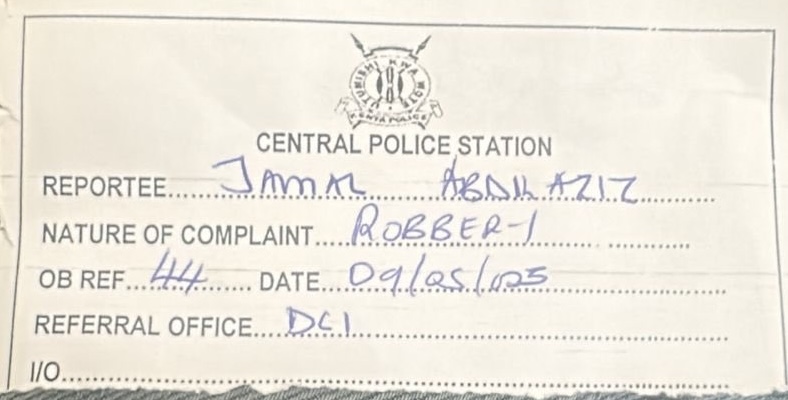 UTUMISHI KWA WOTE
KENYA POLICE
CENTRAL POLICE STATION
REPORTEE.....JAMAL ABDILAZIZ.....
NATURE OF COMPLAINT.....ROBBERY.....
OB REF...44...... DATE...09/05/025.....
REFERRAL OFFICE....DCI.....
I/O.....